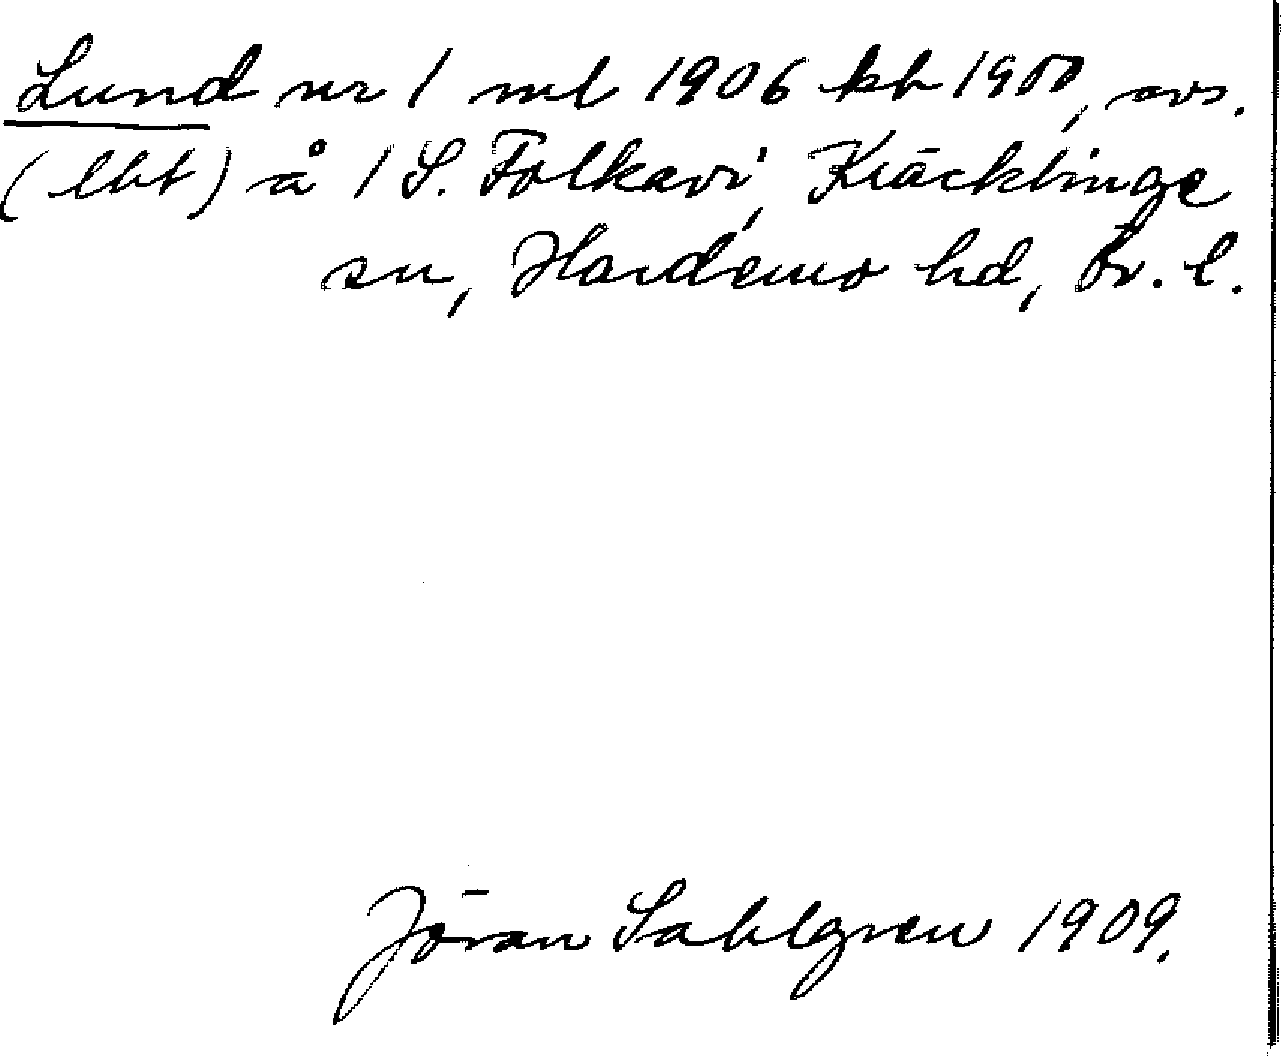 Lund nr 1 ml 1906 kb 1900, avs.
(lht) å 1 S. Folkavi, Kräcklinge
sn, Hardemo hd, Ör. l.
Jöran Sahlgren 1909.